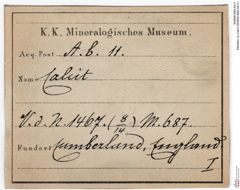 K. K. Mineralogisches Museum.
Acq.-Post A.b. 11.
Name Calcit
V. d. N. 1467. (8/14) M. 687.
Fundort Cumberland, England
I